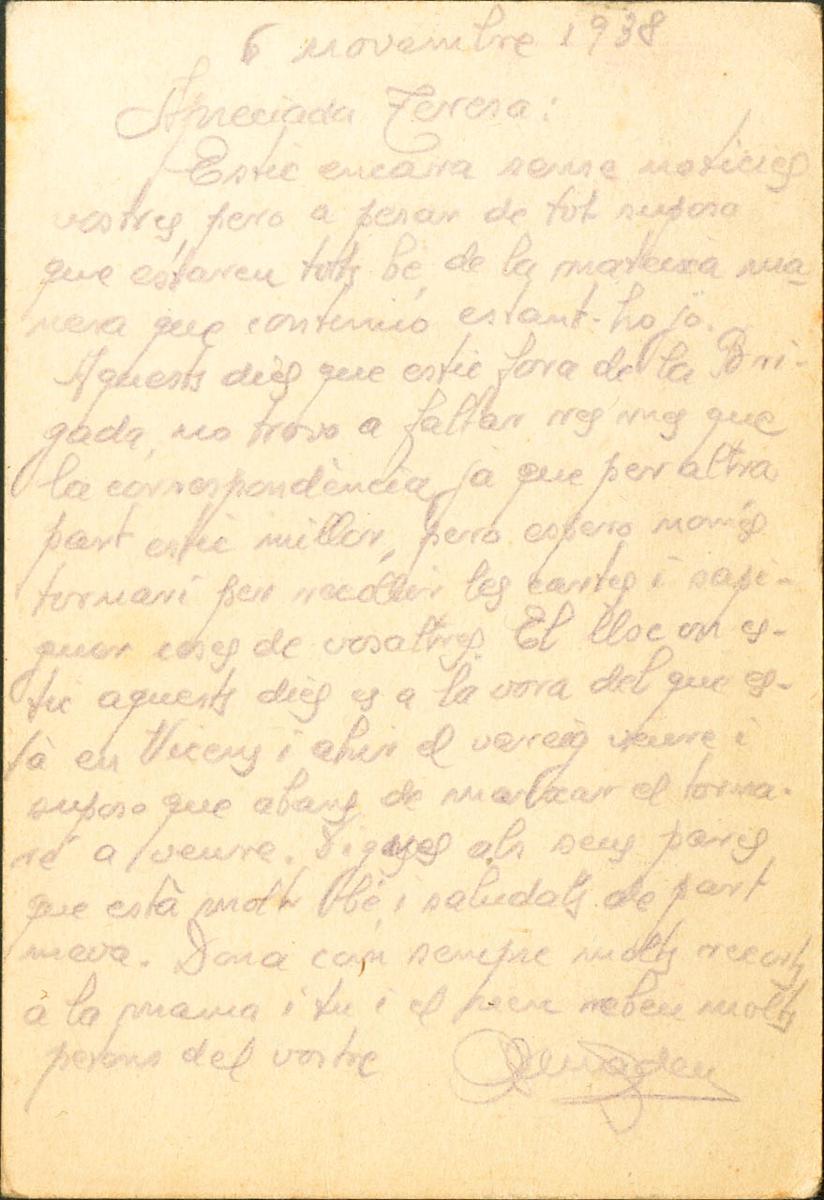 6 novembre 1938
Apreciada Teresa:
Estic encara sense noticies
vostres, pero a pesar de tot suposo
que estareu tots bé, de la mateixa ma-
nera que continuó estant-ho jo.
Aquests dies que estic fora de la Bri-
gada, no trovo a faltar res mes que
la correspondència, ja que per altra
part estic millor, pero espero només
tornari per recollir les cartes i sapi-
guer coses de vosaltres. El lloc on es-
tic aquests dies es a la vora del que es-
tà en Vicens i ahir el vareig veure i
suposo que abans de marxar el torna-
ré a veure. Digues als seus pares
que està molt bé i saludals de part
meva. Dona com sempre molts records
a la mama i tu i el nene rebeu molts
petons del vostre